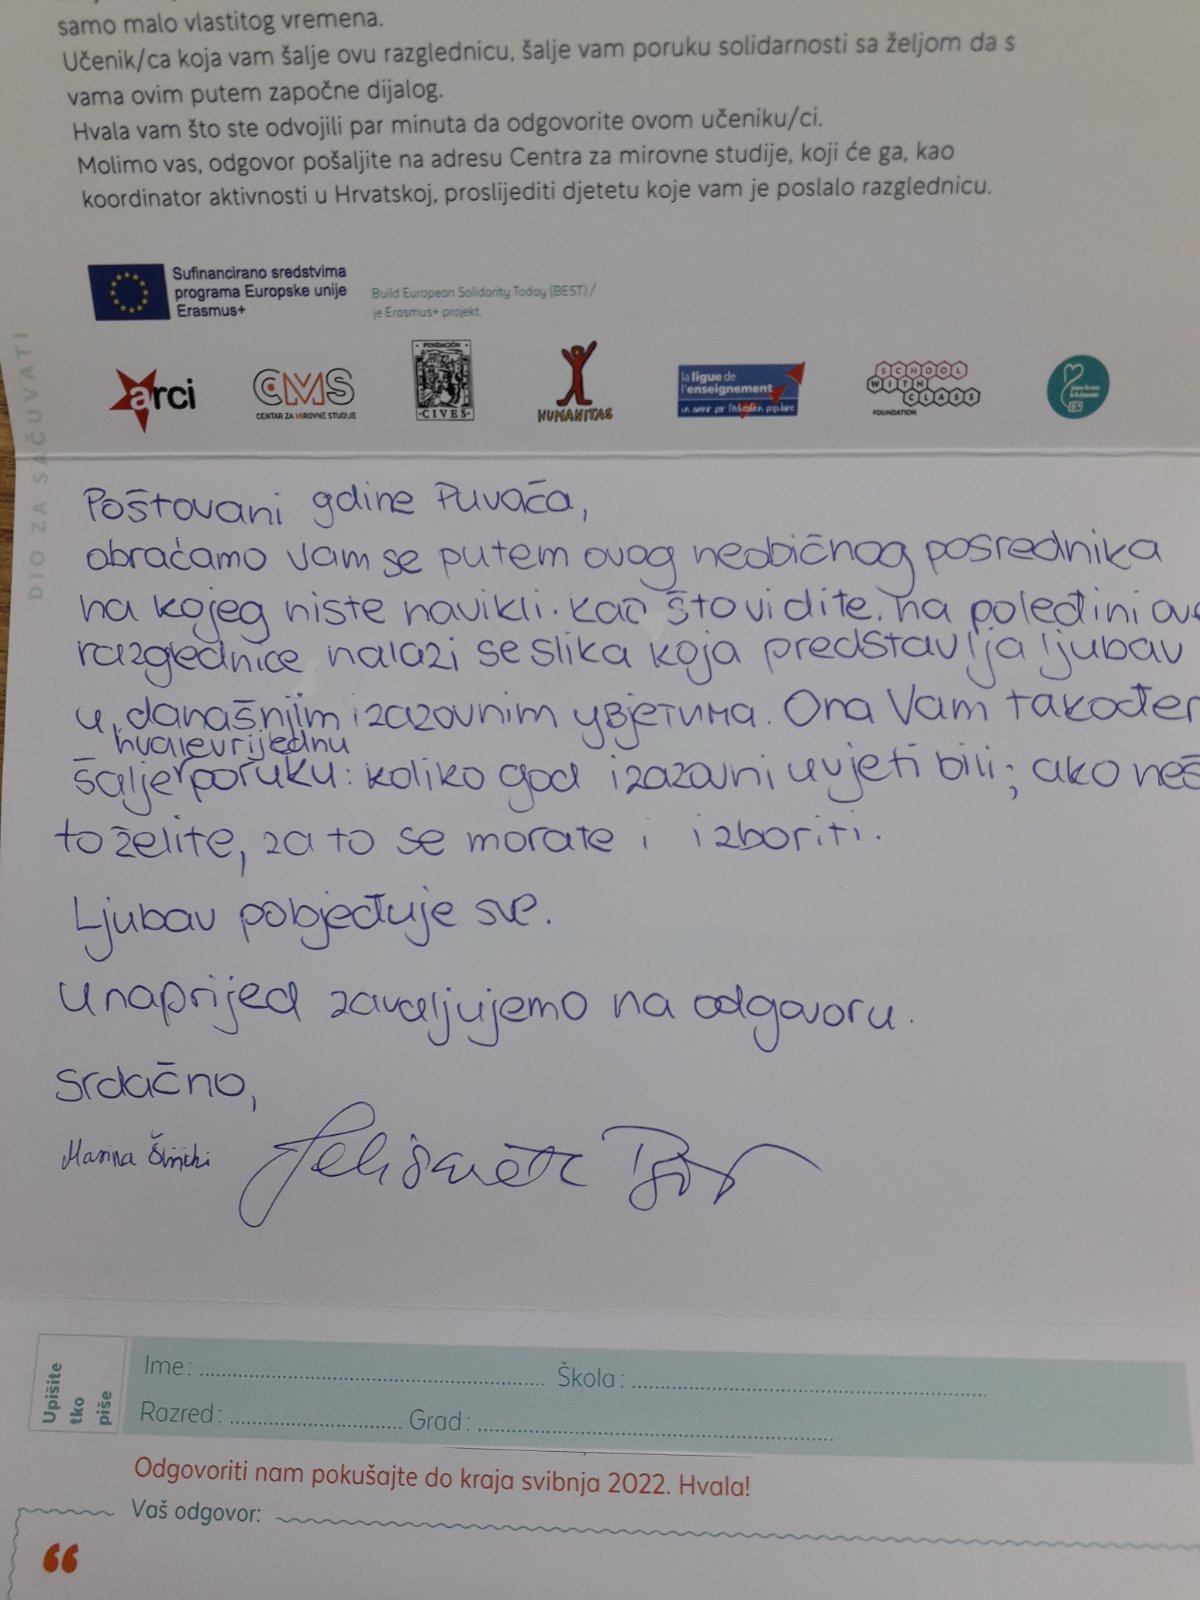 samo malo vlastitog vremena.
Učenik/ca koja vam šalje ovu razglednicu, šalje vam poruku solidarnosti sa željom da s
vama ovim putem započne dijalog.
Hvala vam što ste odvojili par minuta da odgovorite ovom učeniku/ci.
Molimo vas, odgovor pošaljite na adresu Centra za mirovne studije, koji će ga, kao
koordinator aktivnosti u Hrvatskoj, proslijediti djetetu koje vam je poslalo razglednicu.
Sufinancirano sredstvima
programa Europske unije
Erasmus+
Build European Solidarity Today (BEST)/
je Erasmus+ projekt.
arci
CMS
CENTAR ZA MIROVNE STUDIJE
FUNDACIÓN
CIVES
HUMANITAS
la ligue de
l'enseignement
un avenir par l'éducation populaire
SCHOOL
WITH
CLASS
FOUNDATION
DIO ZA SAČUVATI
Poštovani gdine Puvača,
obraćamo vam se putem ovog neobičnog posrednika
na kojeg niste navikli. Kao što vidite, na poleđini ove
razglednice nalazi se slika koja predstavlja ljubav
u današnjim izazovnim увјетима. Ona Vam također
hvalevrijednu
šalje poruku: koliko god izazovni uvjeti bili; ako neš
to želite, za to se morate i izboriti.
Ljubav pobjeđuje sve.
Unaprijed zavaljujemo na odgovoru.
Srdačno,
Marina
Upišite
tko
piše
Ime: Škola:
Razred: Grad:
Odgovoriti nam pokušajte do kraja svibnja 2022. Hvala!
Vaš odgovor:
“